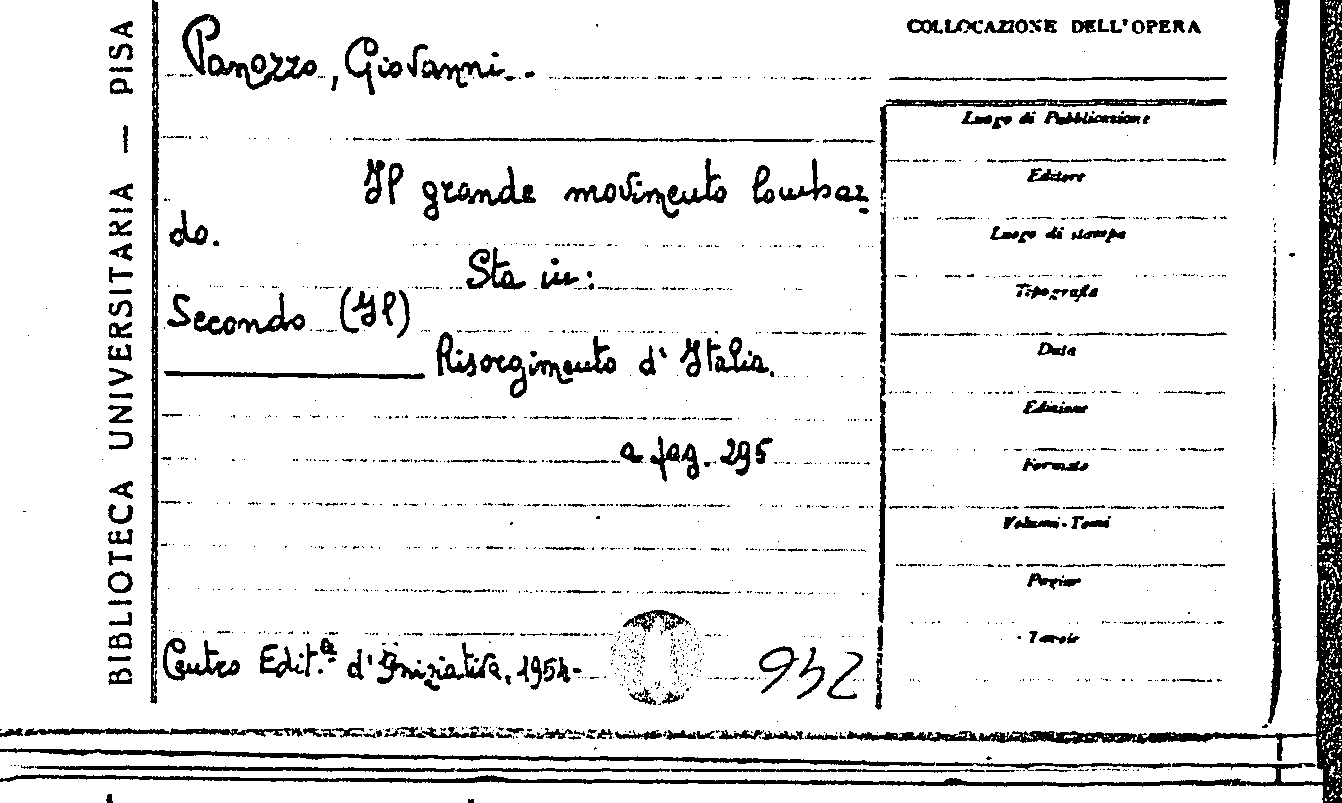 BIBLIOTECA UNIVERSITARIA — PISA
Panozzo, Giovanni. -
Il grande movimento lombar-
do.
Sta in:
Secondo (Il)
Risorgimento d'Italia.
a pag. 295
Centro Edit.le d'Iniziativa, 1954-
COLLOCAZIONE DELL'OPERA
Luogo di Pubblicazione
Editore
Luogo di stampa
Tipografia
Data
Edizione
Formato
Volumi - Tomi
Pagine
Tavole